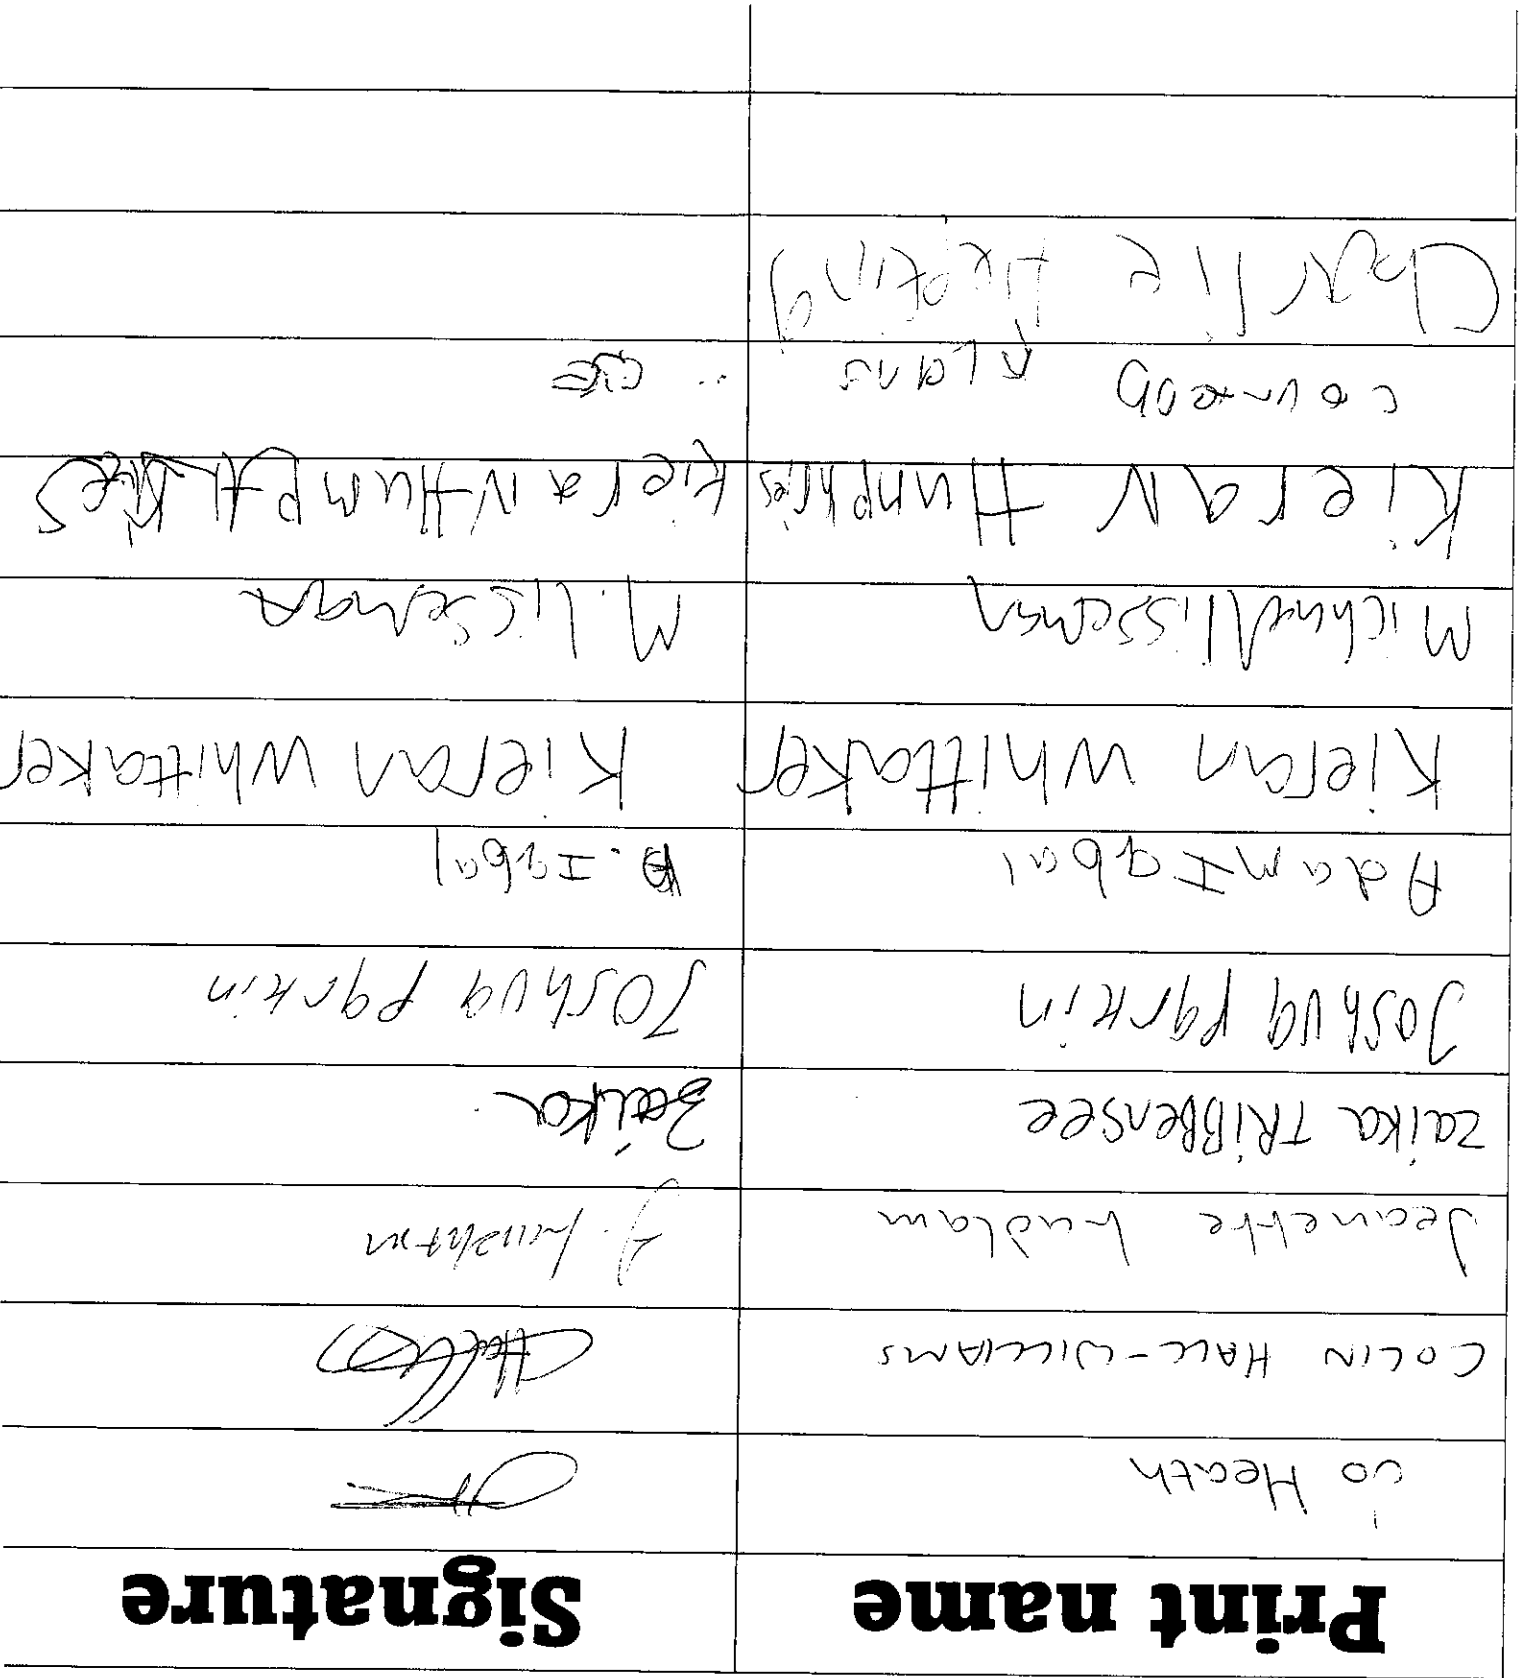 Print name Signature
Jo Heath
COLIN HALL-WILLIAMS
Jeanette Ludlam J. Ludlam
Zaika TRiBBensee Zaika
Joshua Parkin Joshua Parkin
Adam Iqbal A. Iqbal
Kieran Whittaker Kieran Whittaker
Michael lisseman M. lisseman
KieraN Humphries KieraN Humphries
Charlie